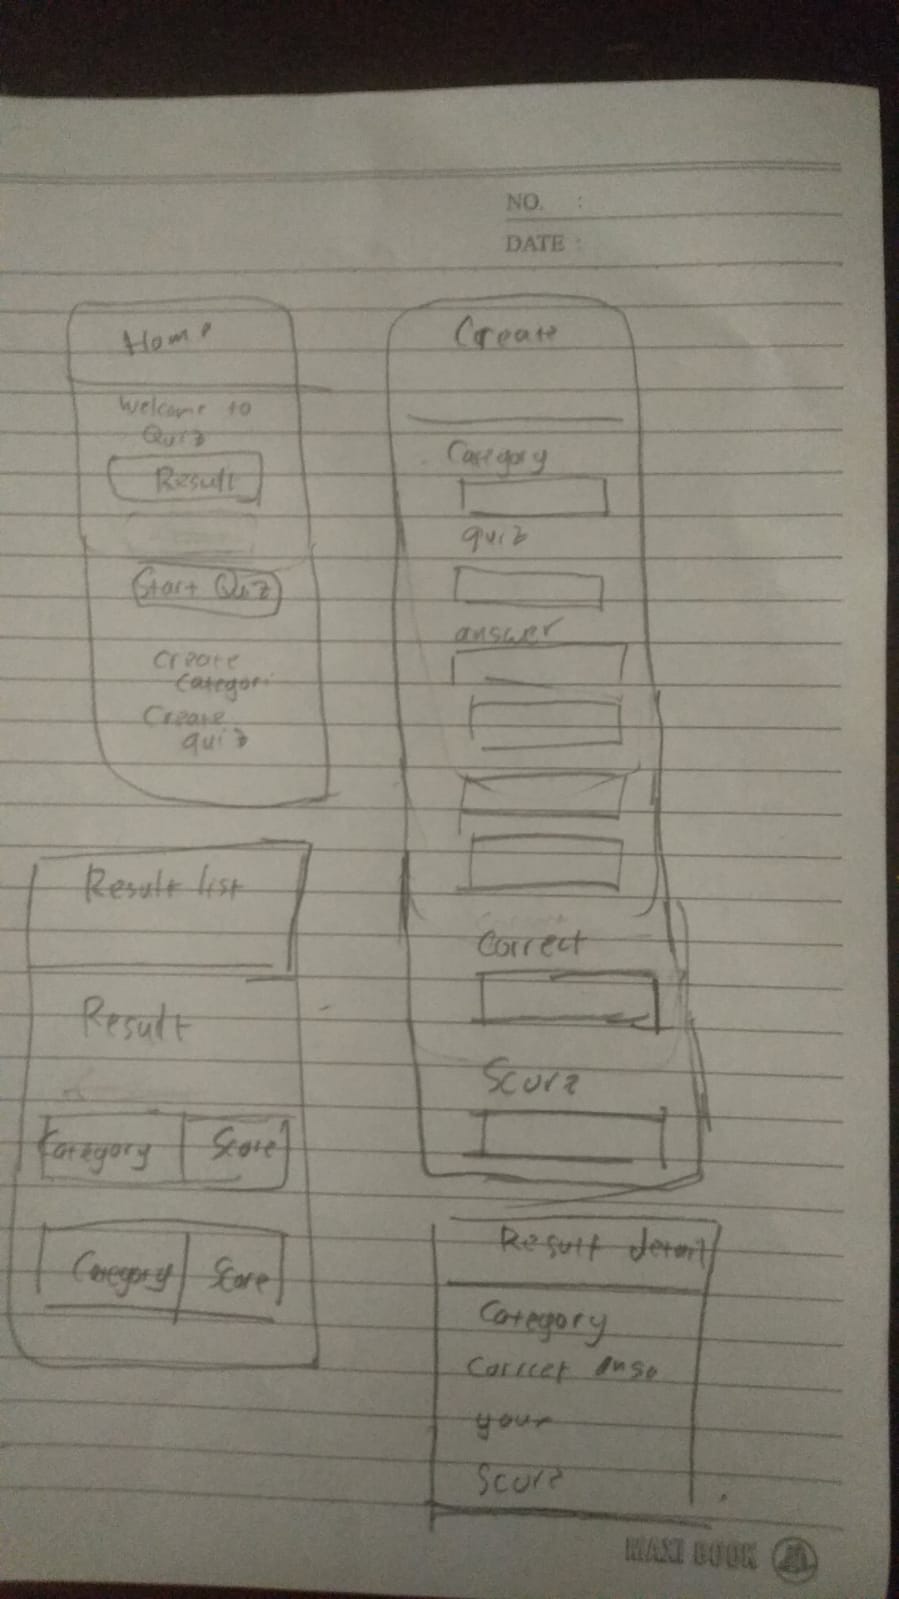 NO. :
DATE :
Home
Welcome to
Quiz
Result
Start Quiz
Create
Categori
Create
quiz
Create
Category
quiz
answer
Correct
Score
Result list
Result
Category Score
Category Score
Result detail
Category
Correct
your
Score
MAXI BOOK